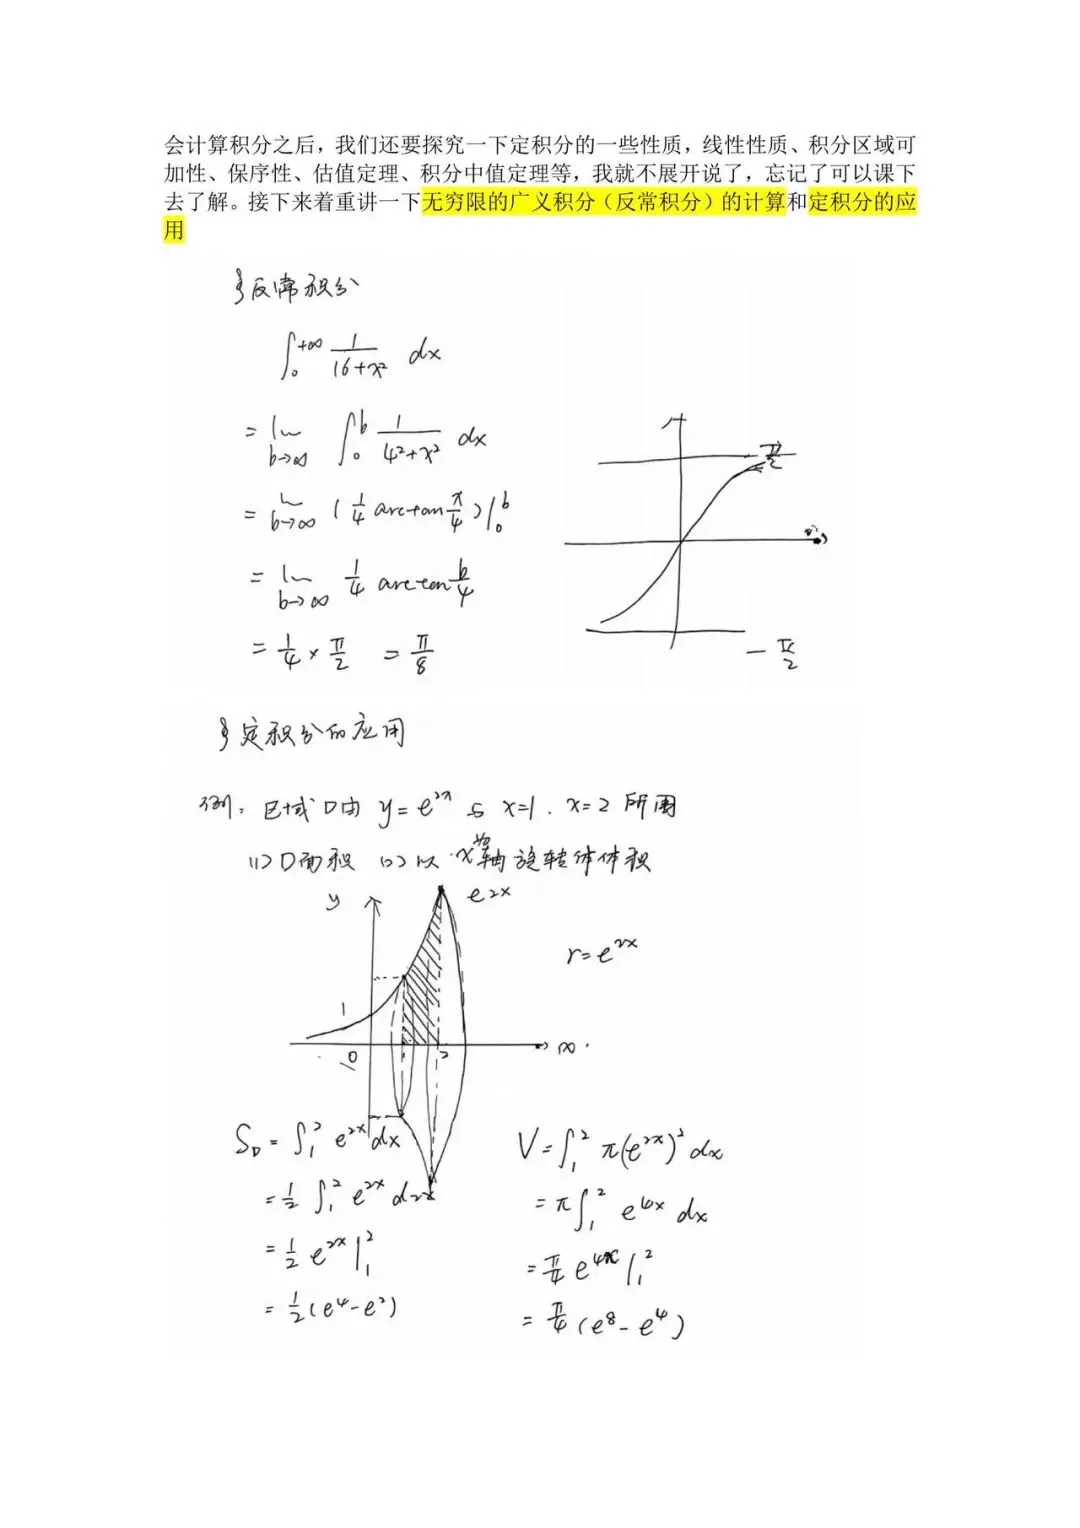 会计算积分之后，我们还要探究一下定积分的一些性质，线性性质、积分区域可
加性、保序性、估值定理、积分中值定理等，我就不展开说了，忘记了可以课下
去了解。接下来着重讲一下无穷限的广义积分（反常积分）的计算和定积分的应
用
§反常积分
∫₀^{+∞} 1/(16+x²) dx
= lim_{b→∞} ∫₀^b 1/(4²+x²) dx
= lim_{b→∞} (1/4 arctan x/4)|₀^b
= lim_{b→∞} 1/4 arctan b/4
= 1/4 × π/2 = π/8
π/2
-π/2
§定积分的应用
例：区域D由 y=e^{2x} 与 x=1、x=2 所围
(1) D面积 (2) 以 x轴旋转体体积
y
e^{2x}
r=e^{2x}
1
0
2
x
S_D = ∫₁² e^{2x} dx
= 1/2 ∫₁² e^{2x} d2x
= 1/2 e^{2x} |₁²
= 1/2 (e⁴-e²)
V = ∫₁² π(e^{2x})² dx
= π∫₁² e^{4x} dx
= π/4 e^{4x} |₁²
= π/4 (e⁸-e⁴)